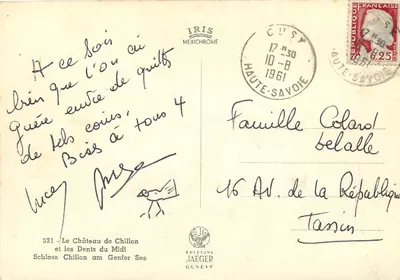 IRIS
MEXICHROME
CUSY
17H30
10-8
1961
HAUTE-SAVOIE
REPUBLIQUE FRANÇAISE
0,25
A ce bois
bien que l'on a
guère envie de quitter
de tels coins.
Bises à tous 4
Famille Colard
16 Av. de la République
Tassin
321 - Le Château de Chillon
et les Dents du Midi
Schloss Chillon am Genfer See
EDITIONS
JAEGER
GENÈVE